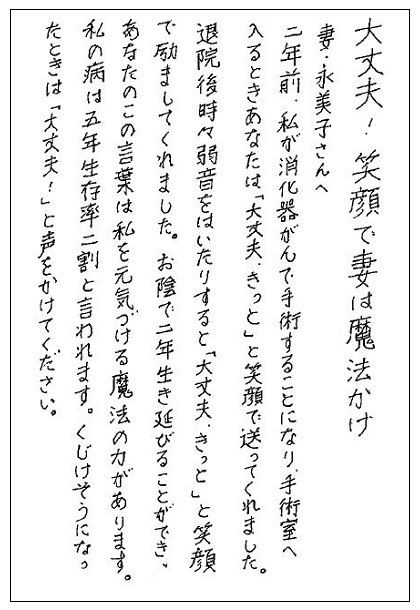 大丈夫！笑顔で妻は魔法かけ
妻・永美子さんへ
二年前、私が消化器がんで手術することになり、手術室へ
入るときあなたは「大丈夫、きっと」と笑顔で送ってくれました。
退院後時々弱音をはいたりすると「大丈夫、きっと」と笑顔
で励ましてくれました。お陰で二年生き延びることができ、
あなたのこの言葉は私を元気づける魔法の力があります。
私の病は五年生存率二割と言われます。くじけそうになっ
たときは「大丈夫！」と声をかけてください。